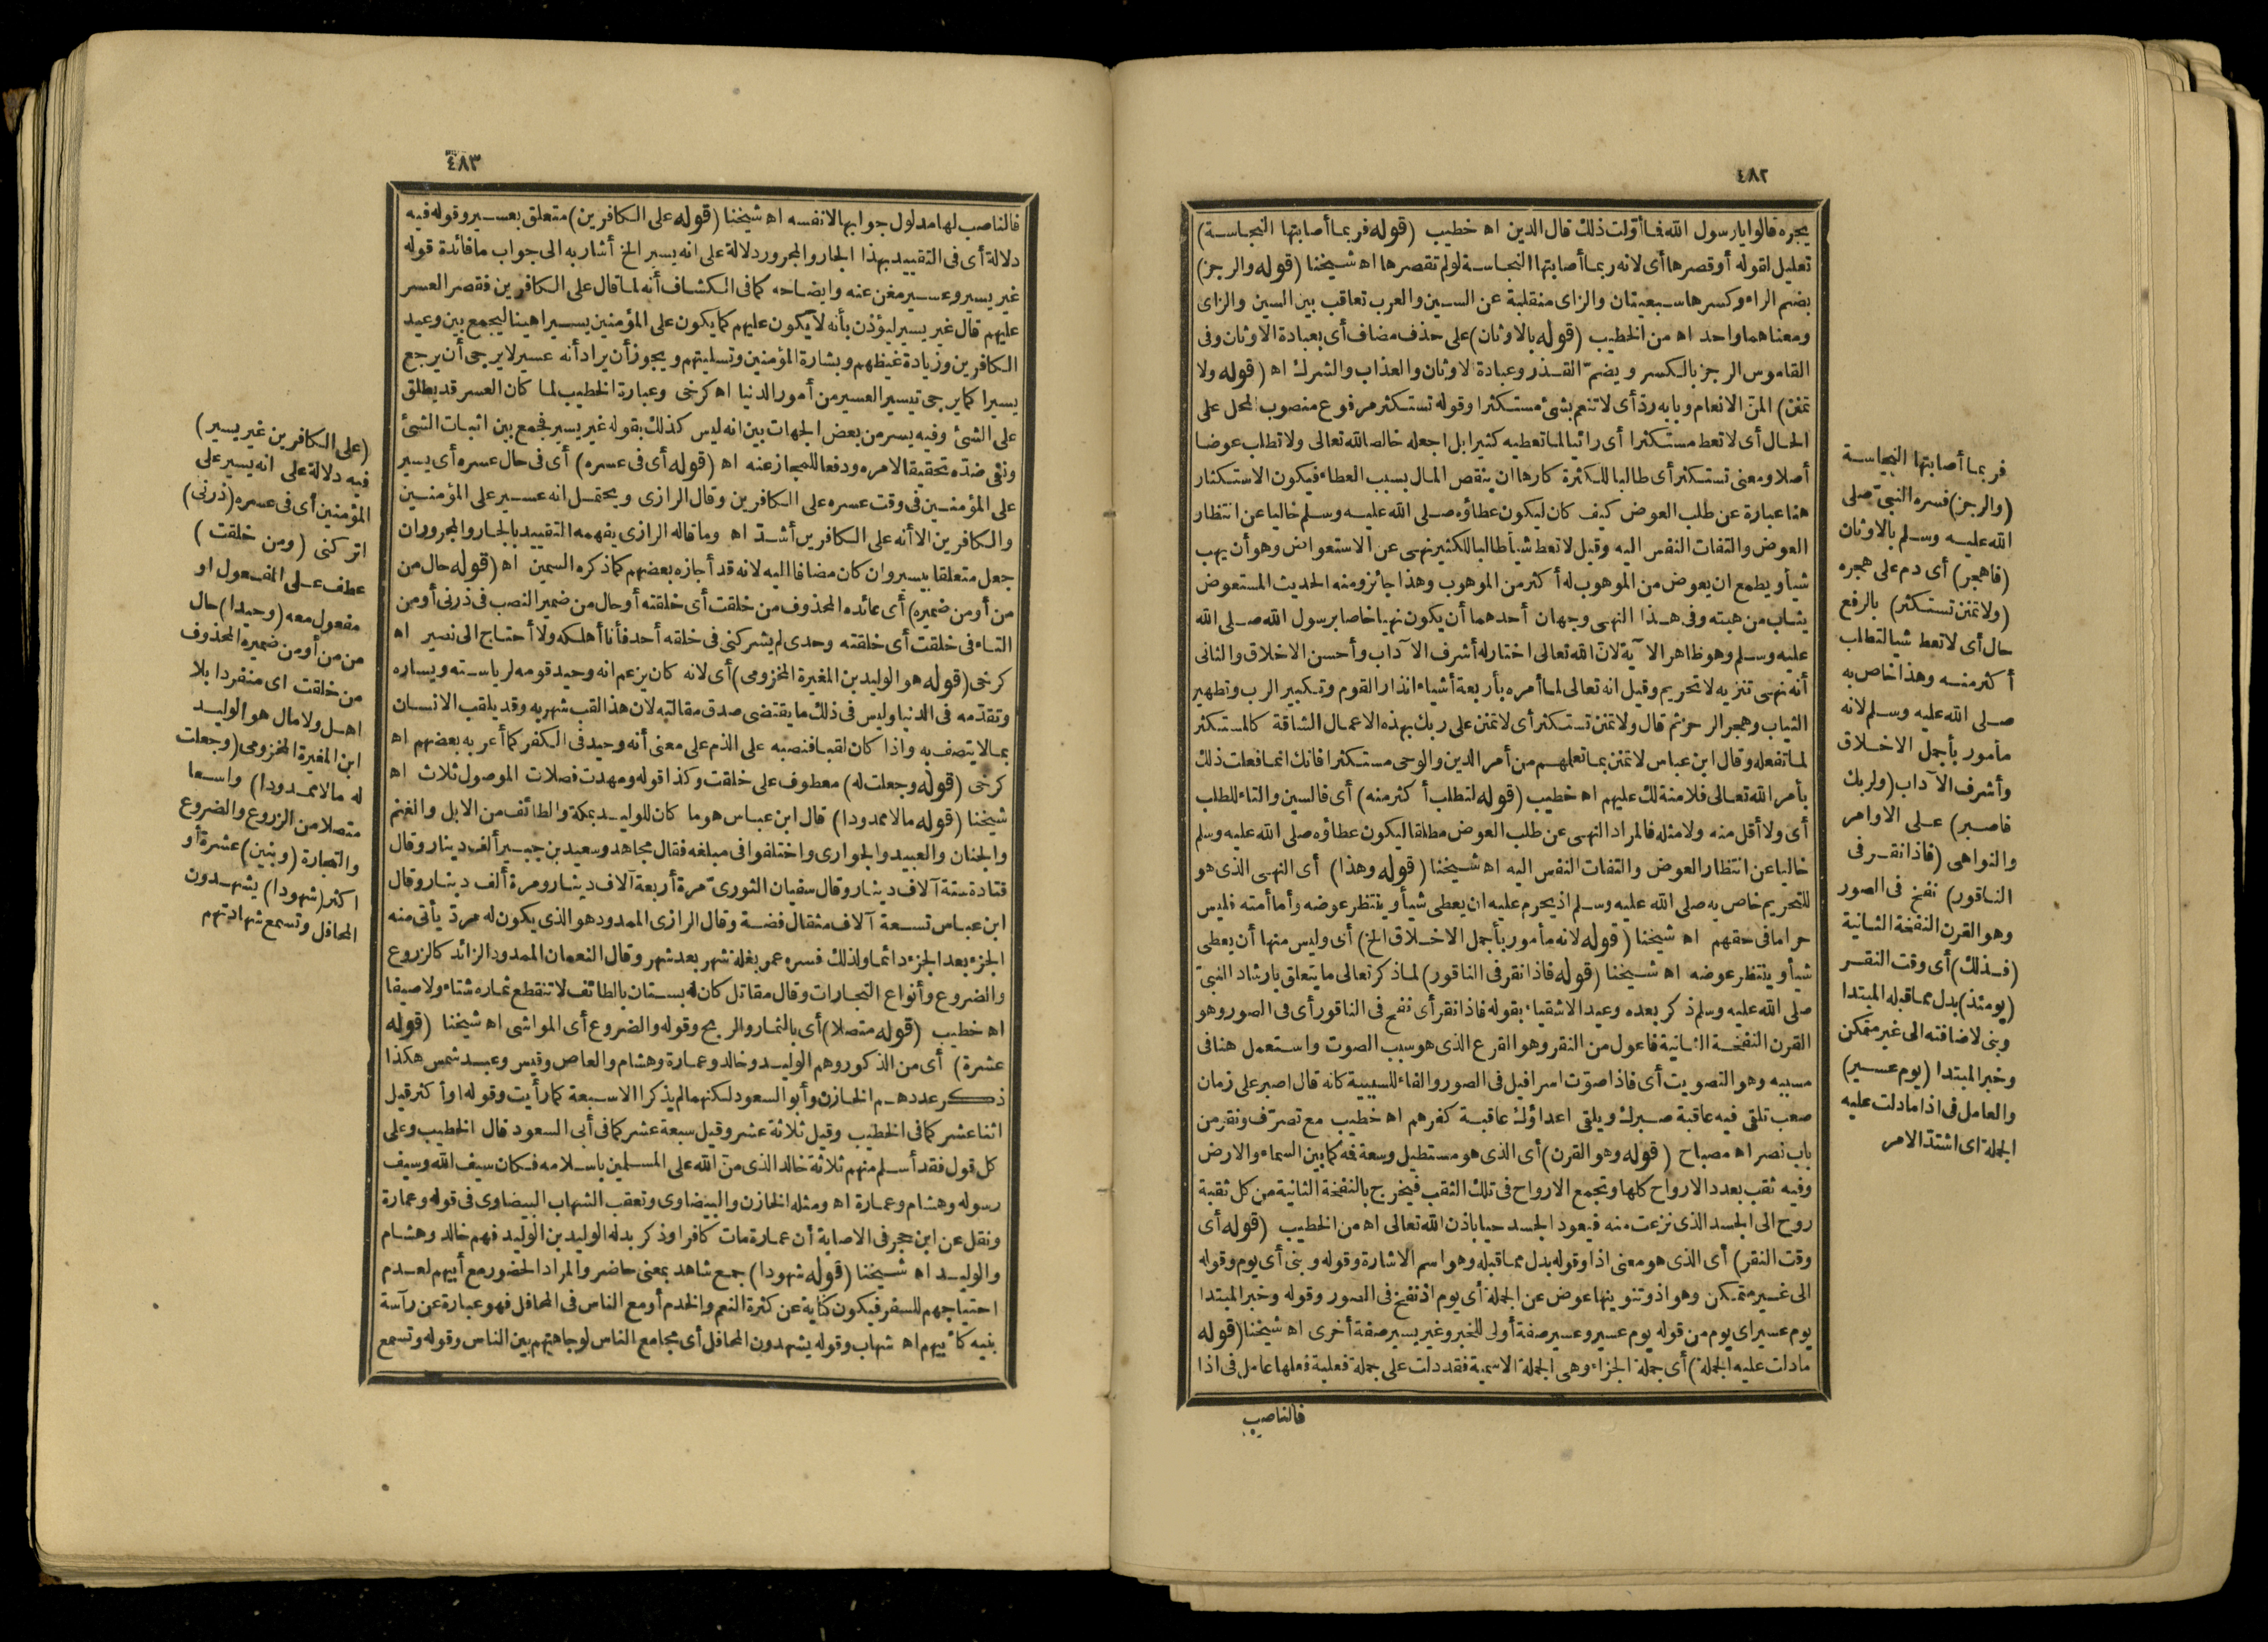 ٤٨٢
يجره قالوا يا رسول الله فما أولت ذلك قال الدين اه خطيب (قوله فربما أصابتها النجاسة)
تعليل لقوله أو قصرها أى لانه ربما أصابتها النجاسة لو لم تقصرها اه شيخنا (قوله والرجز)
بضم الراء وكسرها سبعيتان والزاى منقلبة عن السين والعرب تعاقب بين السين والزاى
ومعناهما واحد اه من الخطيب (قوله بالاوثان) على حذف مضاف أى بعبادة الاوثان وفى
القاموس الرجز بالكسر ويضم القذر وعبادة الاوثان والعذاب والشرك اه (قوله ولا
تمنن) المن الانعام وبابه رد أى لا تنعم بشئ مستكثرا وقوله تستكثر مرفوع منصوب المحل على
الحال أى لا تعط مستكثرا أى رائيا لما تعطيه كثيرا بل اجعله خالصا لله تعالى ولا تطلب عوضا
أصلا ومعنى تستكثر أى طالبا للكثرة كارها ان ينقص المال بسبب العطاء فيكون الاستكثار
هنا عبارة عن طلب العوض كيف كان ليكون عطاؤه صلى الله عليه وسلم خاليا عن انتظار
العوض والتفات النفس اليه وقيل لا تعط شيأ طالبا للكثير نهى عن الاستعواض وهو أن يهب
شيأ ويطمع ان يعوض من الموهوب له أكثر من الموهوب وهذا جائز ومنه الحديث المستعوض
يثاب من هبته وفى هذا النهى وجهان أحدهما أن يكون نهيا خاصا برسول الله صلى الله
عليه وسلم وهو ظاهر الآية لان الله تعالى اختار له أشرف الآداب وأحسن الاخلاق والثانى
أنه نهى تنزيه لا تحريم وقيل انه تعالى لما أمره بأربعة أشياء انذار القوم وتكبير الرب وتطهير
الثياب وهجر الرجز ثم قال ولا تمنن تستكثر أى لا تمنن على ربك بهذه الاعمال الشاقة كالمستكثر
لما تفعله وقال ابن عباس لا تمنن بما تعلمهم من أمر الدين والوحى مستكثرا فانك انما فعلت ذلك
بأمر الله تعالى فلا منة لك عليهم اه خطيب (قوله لتطلب أكثر منه) أى فالسين والتاء للطلب
أى ولا أقل منه ولا مثله فالمراد النهى عن طلب العوض مطلقا ليكون عطاؤه صلى الله عليه وسلم
خاليا عن انتظار العوض والتفات النفس اليه اه شيخنا (قوله وهذا) أى النهى الذى هو
للتحريم خاص به صلى الله عليه وسلم اذ يحرم عليه ان يعطى شيأ وينتظر عوضه وأما أمته فليس
حراما فى حقهم اه شيخنا (قوله لانه مأمور بأجمل الاخلاق الخ) أى وليس منها أن يعطى
شيأ وينتظر عوضه اه شيخنا (قوله فاذا نقر فى الناقور) لما ذكر تعالى ما يتعلق بارشاد النبى
صلى الله عليه وسلم ذكر بعده وعيد الاشقياء بقوله فاذا نقر أى نفخ فى الناقور أى فى الصور وهو
القرن النفخة الثانية فاعول من النقر وهو القرع الذى هو سبب الصوت واستعمل هنا فى
مسببه وهو التصويت أى فاذا صوّت اسرافيل فى الصور والفاء للسببية كانه قال اصبر على زمان
صعب تلقى فيه عاقبة صبرك ويلقى اعداؤك عاقبة كفرهم اه خطيب مع تصرف ونقر من
باب نصر اه مصباح (قوله وهو القرن) أى الذى هو مستطيل وسعة فه كما بين السماء والارض
وفيه ثقب بعدد الارواح كلها وتجمع الارواح فى تلك الثقب فيخرج بالنفخة الثانية من كل ثقبة
روح الى الجسد الذى نزعت منه فيعود الجسد حيا باذن الله تعالى اه من الخطيب (قوله أى
وقت النقر) أى الذى هو معنى اذا وقوله بدل مما قبله وهو اسم الاشارة وقوله وبنى أى يوم وقوله
الى غير متمكن وهو اذ وتنوينها عوض عن الجملة أى يوم اذ نفخ فى الصور وقوله وخبر المبتدا
يوم عسير اى يوم من قوله يوم عسير وعسير صفة أولى للخبر وغير يسير صفة أخرى اه شيخنا (قوله
ما دلت عليه الجملة) أى جملة الجزاء وهى الجملة الاسمية فقد دلت على جملة فعلية فعلها عامل فى اذا
فالناصب
فربما أصابتها النجاسة
(والرجز) فسره النبى صلى
الله عليه وسلم بالاوثان
(فاهجر) أى دم على هجره
(ولا تمنن تستكثر) بالرفع
حال أى لا تعط شيا لتطلب
أكثر منه وهذا خاص به
صلى الله عليه وسلم لانه
مأمور بأجمل الاخلاق
وأشرف الآداب (ولربك
فاصبر) على الاوامر
والنواهى (فاذا نقر فى
الناقور) نفخ فى الصور
وهو القرن النفخة الثانية
(فذلك) أى وقت النقر
(يومئذ) بدل مما قبله المبتدا
وبنى لاضافته الى غير متمكن
وخبر المبتدا (يوم عسير)
والعامل فى اذا ما دلت عليه
الجملة اى اشتد الامر
٤٨٣
فالناصب لها مدلول جوابها لا نفسه اه شيخنا (قوله على الكافرين) متعلق بعسير وقوله فيه
دلالة أى فى التقييد بهذا الجار والمجرور دلالة على انه يسير الخ أشار به الى جواب ما فائدة قوله
غير يسير وعسير مغن عنه وايضاحه كما فى الكشاف أنه لما قال على الكافرين فقصر العسر
عليهم قال غير يسير ليؤذن بأنه لا يكون عليهم كما يكون على المؤمنين يسيرا هينا ليجمع بين وعيد
الكافرين وزيادة غيظهم وبشارة المؤمنين وتسليتهم ويجوز أن يراد أنه عسير لا يرجى أن يرجع
يسيرا كما يرجى تيسير العسير من أمور الدنيا اه كرخى وعبارة الخطيب لما كان العسر قد يطلق
على الشئ وفيه يسر من بعض الجهات بين انه ليس كذلك بقوله غير يسير فجمع بين اثبات الشئ
ونفى ضده تحقيقا لامره ودفعا للمجاز عنه اه (قوله أى فى عسره) أى فى حال عسره أى يسير
على المؤمنين فى وقت عسره على الكافرين وقال الرازى ويحتمل انه عسير على المؤمنين
والكافرين الا أنه على الكافرين أشد اه وما قاله الرازى يفهمه التقييد بالجار والمجرور ان
جعل متعلقا بيسير وان كان مضافا اليه لانه قد أجازه بعضهم كما ذكره السمين اه (قوله حال من
من أو من ضميره) أى عائده المحذوف من خلقت أى خلقته أو حال من ضمير النصب فى ذرنى أو من
التاء فى خلقت أى خلقته وحدى لم يشركنى فى خلقه أحد فأنا أهلكه ولا أحتاج الى نصير اه
كرخى (قوله هو الوليد بن المغيرة المخزومى) أى لانه كان يزعم انه وحيد قومه لرياسته ويساره
وتقدمه فى الدنيا وليس فى ذلك ما يقتضى صدق مقالته لان هذا لقب شهر به وقد يلقب الانسان
بما لا يتصف به واذا كان لقبا فنصبه على الذم على معنى أنه وحيد فى الكفر كما أعربه بعضهم اه
كرخى (قوله وجعلت له) معطوف على خلقت وكذا قوله ومهدت فصلات الموصول ثلاث اه
شيخنا (قوله مالا ممدودا) قال ابن عباس هو ما كان للوليد بمكة والطائف من الابل والغنم
والجنان والعبيد والجوارى واختلفوا فى مبلغه فقال مجاهد وسعيد بن جبير ألف دينار وقال
قتادة ستة آلاف دينار وقال سفيان الثورى مرة أربعة آلاف دينار ومرة ألف دينار وقال
ابن عباس تسعة آلاف مثقال فضة وقال الرازى الممدود هو الذى يكون له مرة يأتى منه
الجزء بعد الجزء دائما ولذلك فسره عمر بغلة شهر بعد شهر وقال النعمان الممدود الزائد كالزروع
والضروع وأنواع التجارات وقال مقاتل كان له بستان بالطائف لا تنقطع ثماره شتاء ولا صيفا
اه خطيب (قوله متصلا) أى بالثمار والربح وقوله والضروع أى المواشى اه شيخنا (قوله
عشرة) أى من الذكور وهم الوليد وخالد وعمارة وهشام والعاص وقيس وعبد شمس هكذا
ذكر عددهم الخازن وأبو السعود لكنهما لم يذكرا الا سبعة كما رأيت وقوله او أكثر قيل
اثنا عشر كما فى الخطيب وقيل ثلاثة عشر وقيل سبعة عشر كما فى أبى السعود قال الخطيب وعلى
كل قول فقد أسلم منهم ثلاثة خالد الذى من الله على المسلمين باسلامه فكان سيف الله وسيف
رسوله وهشام وعمارة اه ومثله الخازن والبيضاوى وتعقب الشهاب البيضاوى فى قوله وعمارة
ونقل عن ابن حجر فى الاصابة أن عمارة مات كافرا وذكر بدله الوليد بن الوليد فهم خالد وهشام
والوليد اه شيخنا (قوله شهودا) جمع شاهد بمعنى حاضر والمراد الحضور مع أبيهم لعدم
احتياجهم للسفر فيكون كناية عن كثرة النعم والخدم أو مع الناس فى المحافل فهو عبارة عن رآسة
بنيه كأبيهم اه شهاب وقوله يشهدون المحافل أى مجامع الناس لوجاهتهم بين الناس وقوله وتسمع
(على الكافرين غير يسير)
فيه دلالة على انه يسير على
المؤمنين أى فى عسره (ذرنى)
اتركنى (ومن خلقت)
عطف على المفعول او
مفعول معه (وحيدا) حال
من من أو من ضميره المحذوف
من خلقت اى منفردا بلا
اهل ولا مال هو الوليد
ابن المغيرة المخزومى (وجعلت
له مالا ممدودا) واسعا
متصلا من الزروع والضروع
والتجارة (وبنين) عشرة أو
اكثر (شهودا) يشهدون
المحافل وتسمع شهادتهم